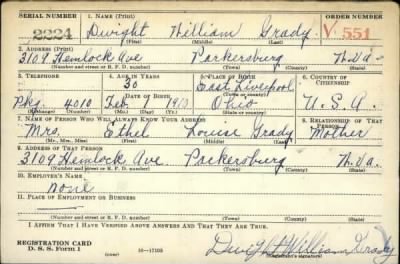 SERIAL NUMBER 1. NAME (Print) ORDER NUMBER
2224 Dwight William Grady V 551
(First) (Middle) (Last)
2. ADDRESS (Print)
3109 Hemlock Ave Parkersburg W.Va-
(Number and street or R. F. D. number) (Town) (County) (State)
3. TELEPHONE 4. AGE IN YEARS 5. PLACE OF BIRTH 6. COUNTRY OF CITIZENSHIP
30 East Liverpool
DATE OF BIRTH (Town or county)
Pkg. 4010 Feb 1 1910 Ohio U.S.A.
(Mo.) (Day) (Yr.) (State or country)
7. NAME OF PERSON WHO WILL ALWAYS KNOW YOUR ADDRESS 8. RELATIONSHIP OF THAT PERSON
Mrs. Ethel Louise Grady Mother
(Mr., Mrs., Miss) (First) (Middle) (Last)
9. ADDRESS OF THAT PERSON
3109 Hemlock Ave. Parkersburg W.Va.
(Number and street or R. F. D. number) (Town) (County) (State)
10. EMPLOYER'S NAME
none
11. PLACE OF EMPLOYMENT OR BUSINESS
(Number and street or R. F. D. number) (Town) (County) (State)
I AFFIRM THAT I HAVE VERIFIED ABOVE ANSWERS AND THAT THEY ARE TRUE.
REGISTRATION CARD
D. S. S. Form 1 (over) 16—17105 Dwight William Grady
(Registrant's signature)